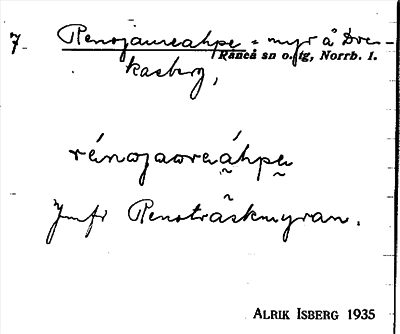 7. Renojaureahpe = myr å Dre-
Råneå sn o. tg, Norrb. l.
kasberg,
rénojaoreáhpe
Jmfr Renoträskmyran.
ALRIK ISBERG 1935